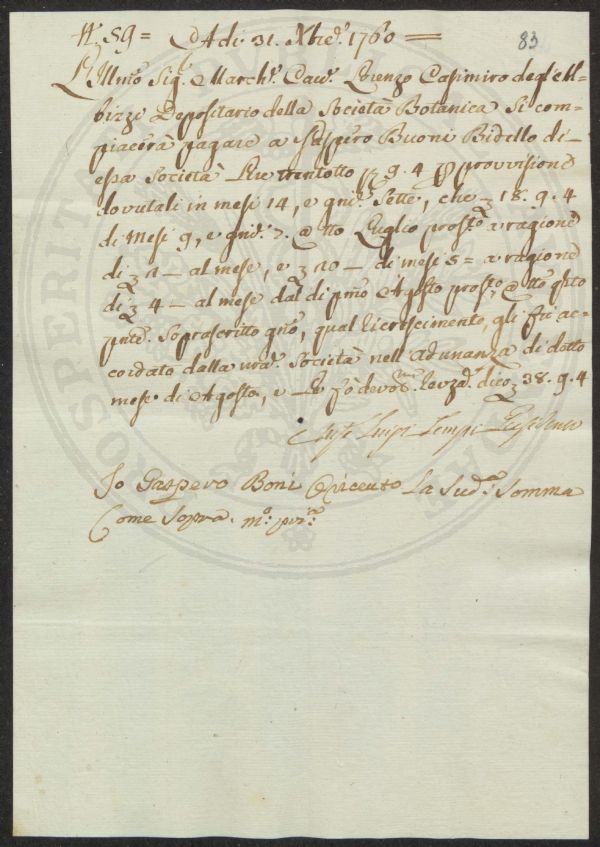 N.° 59 = Adi 31. Xbre. 1760 =
83
Illmo Sig.e March.e Cav.e Lorenzo Casimiro degl'Al=
bizze Depositario della Società Botanica Si com=
piacerà pagare a Gaspero Buoni Bidello di
essa Società Lire trentotto 9. 4 provvisione
dovutali in mesi 14, e gni. Sette, che 18. 9. 4
di Mesi 9, e gni. 7. a tto Luglio prost.o a ragione
di 2 — al mese, e 20 — di mesi 5 = a ragione
di 4 — al mese dal di pmo Agosto prost.o a tto
pnte. Soprascritto gno, qual ricrescimento, gli fù ac=
cordato dalla nra. Società nell'Adunanza di detto
mese di Agosto, e dico 38. 9. 4
Luigi Tempi Presidente
Io Gaspero Boni Ò riceuto La Sud.a Somma
Come Sopra. m.o pp.a
PROSPERITA